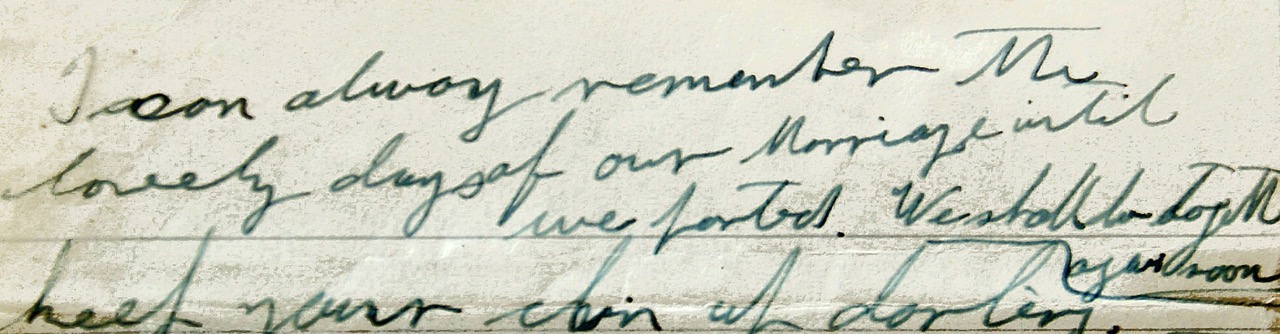 I can alway remember The
lovely days of our Marriage until
we parted. We shall be togeth
again soon
keep your chin up darling.